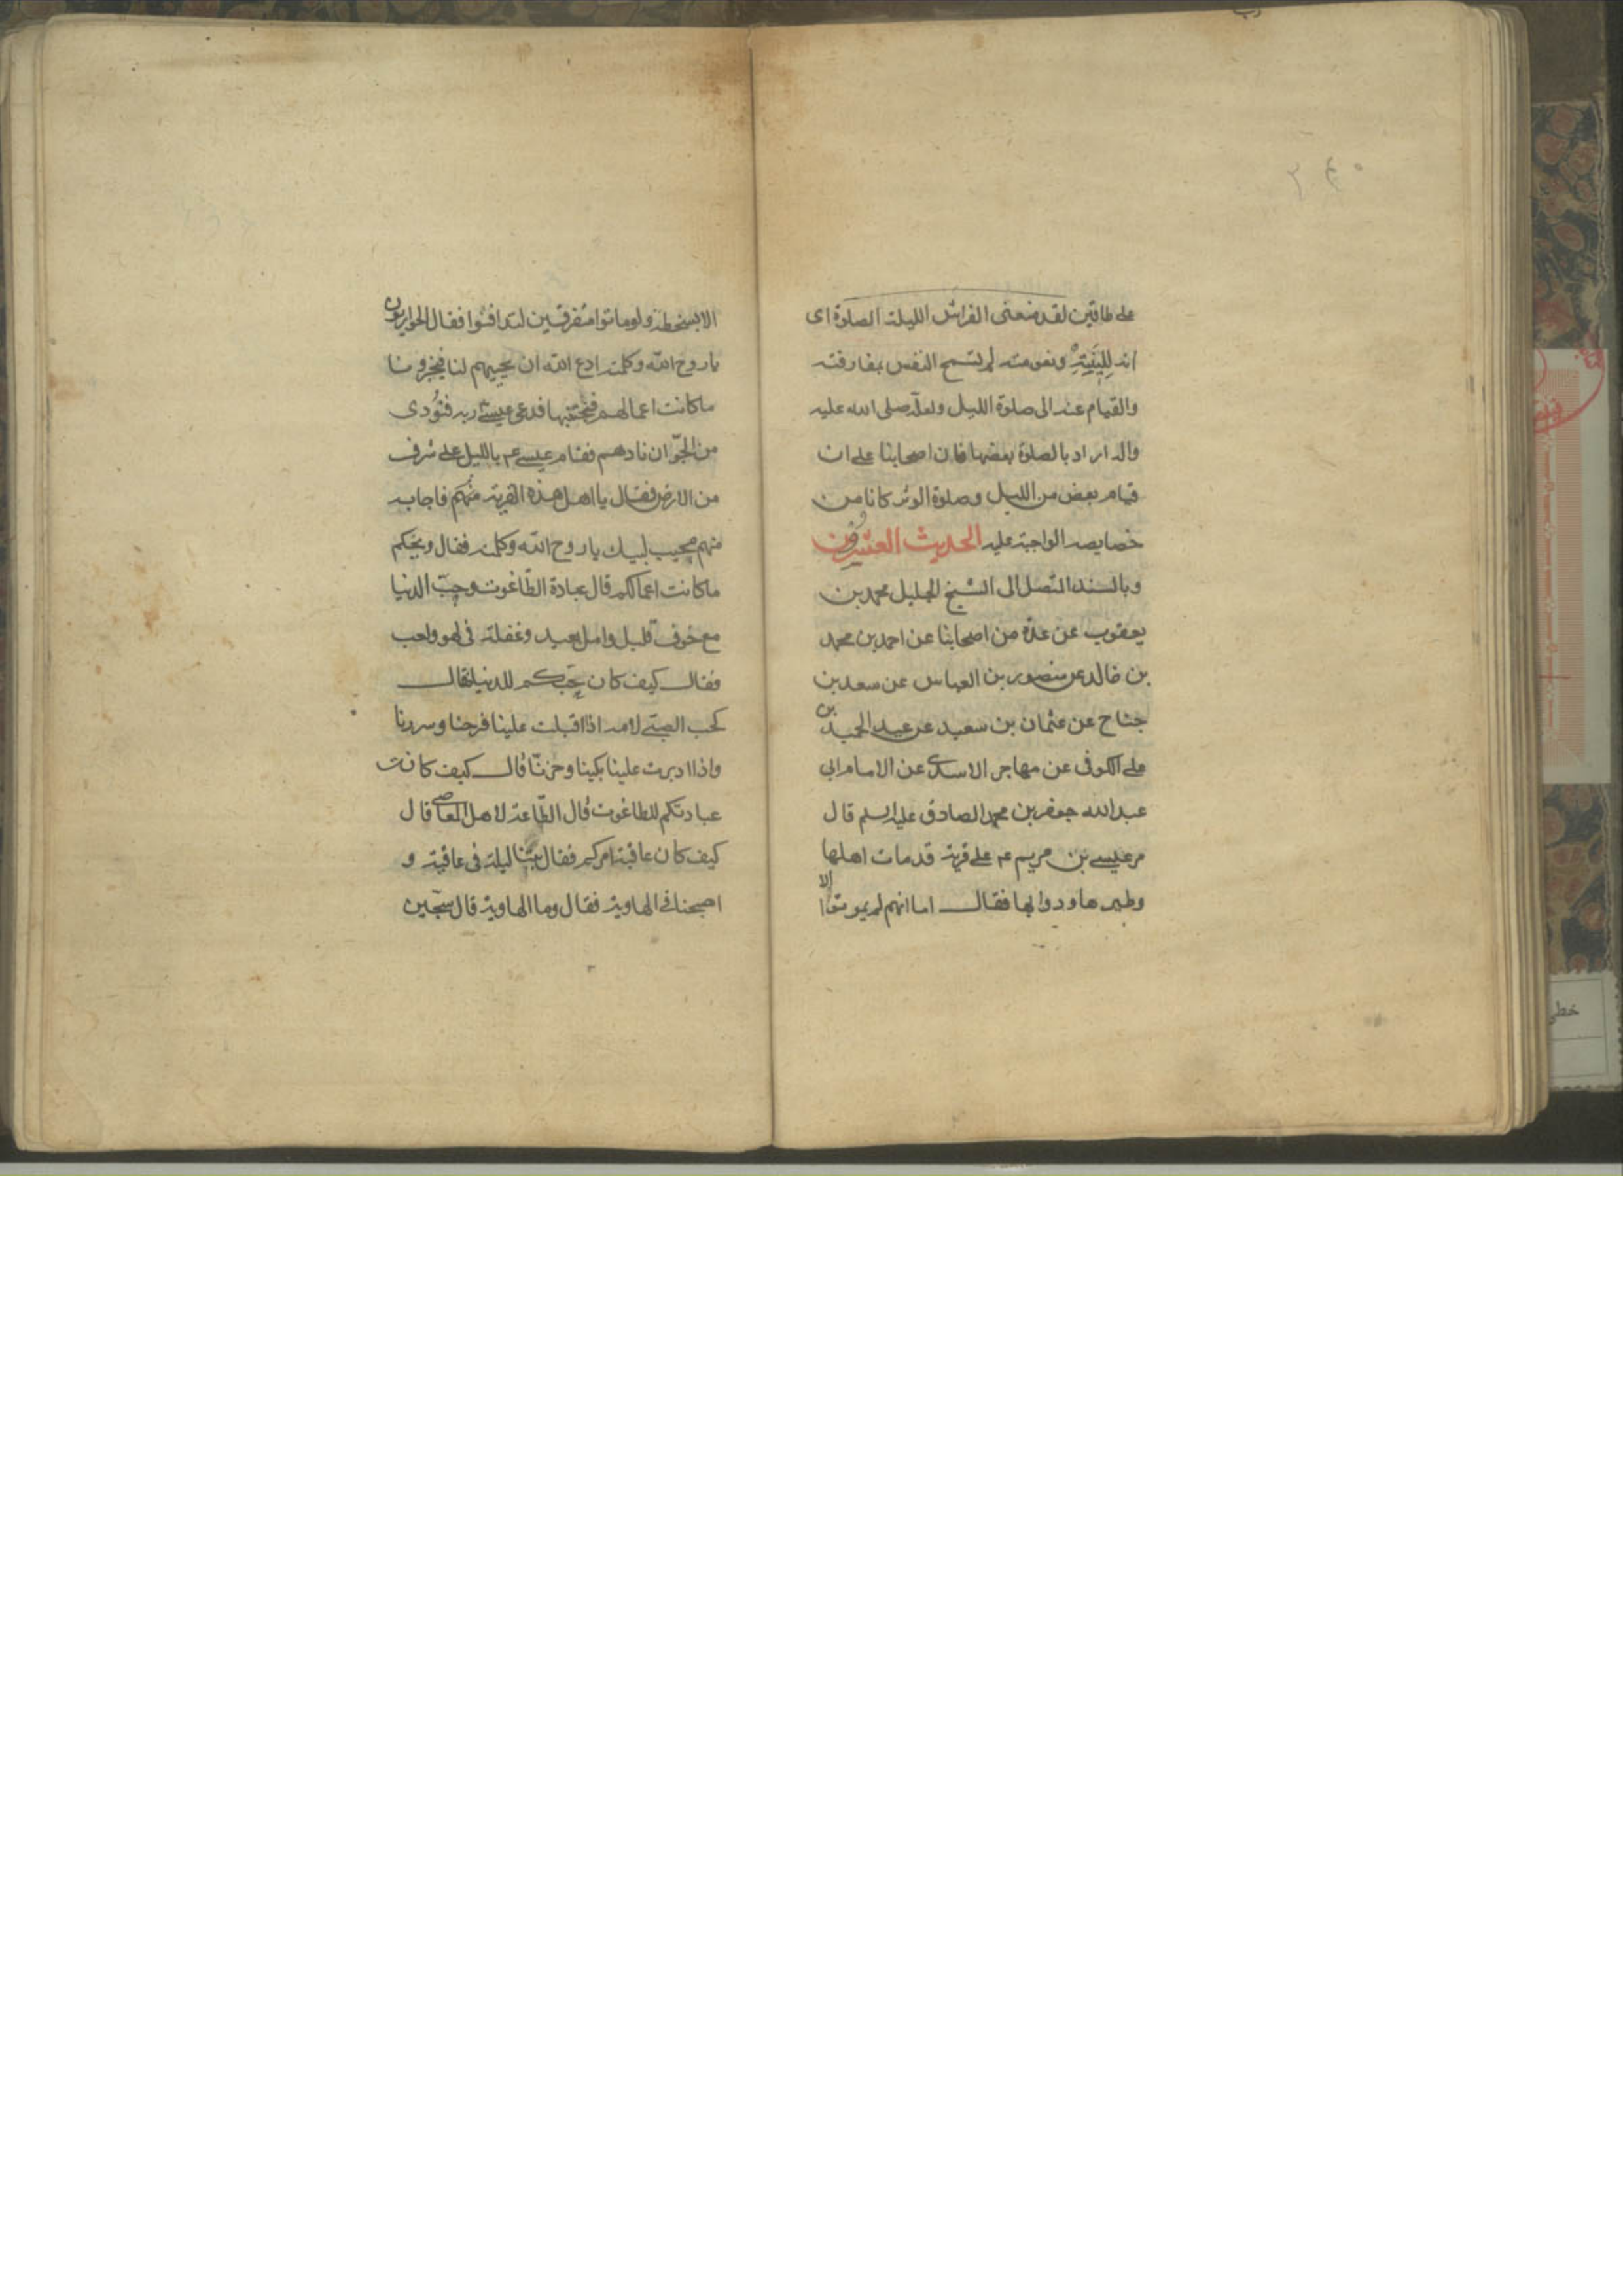 على طاقين لقد منعنى الفراش الليلة الصلوة اى
انه للينته ونعومته لم تسمح النفس بمفارقته
والقيام عنه الى صلوة الليل ولعله صلى الله عليه
واله اراد بالصلوة بعضها فان اصحابنا على ان
قيام بعض من الليل وصلوة الوتر كانا من
خصايصه الواجبة عليه الحديث العشرون
وبالسند المتصل الى الشيخ الجليل محمد بن
يعقوب عن عدة من اصحابنا عن احمد بن محمد
بن خالد عن منصور بن العباس عن سعد بن
جناح عن عثمان بن سعيد عن عبد الحميد بن
على الكوفى عن مهاجر الاسدى عن الامام ابى
عبد الله جعفر بن محمد الصادق عليه السلم قال
مر عيسى بن مريم عم على قرية قد مات اهلها
وطيرها ودوابها فقال اما انهم لم يموتوا الا
الا بسخطة ولو ماتوا متفرقين لتدافنوا فقال الحواريون
يا روح الله وكلمته ادع الله ان يحييهم لنا فيخبرونا
ما كانت اعمالهم فنجتنبها فدعى عيسى ربه فنُودى
من الجوّ ان نادهم فقام عيسى عم بالليل على شرف
من الارض فقال يا اهل هذه القرية منكم فاجابه
منهم مجيب لبيك يا روح الله وكلمته فقال ويحكم
ما كانت اعمالكم قال عبادة الطّاغوت وحبّ الدنيا
مع خوف قليل وامل بعيد وغفلة فى لهو ولعب
فقال كيف كان حبّكم للدنيا فقال
كحب الصبى لامه اذا اقبلت علينا فرحنا وسررنا
واذا ادبرت علينا بكينا وحزنّا قال كيف كانت
عبادتكم للطاغوت قال الطّاعة لاهل المعاصى قال
كيف كان عاقبة امركم فقال بتنا ليلة فى عافية و
اصبحنا فى الهاوية فقال وما الهاوية قال سجّين